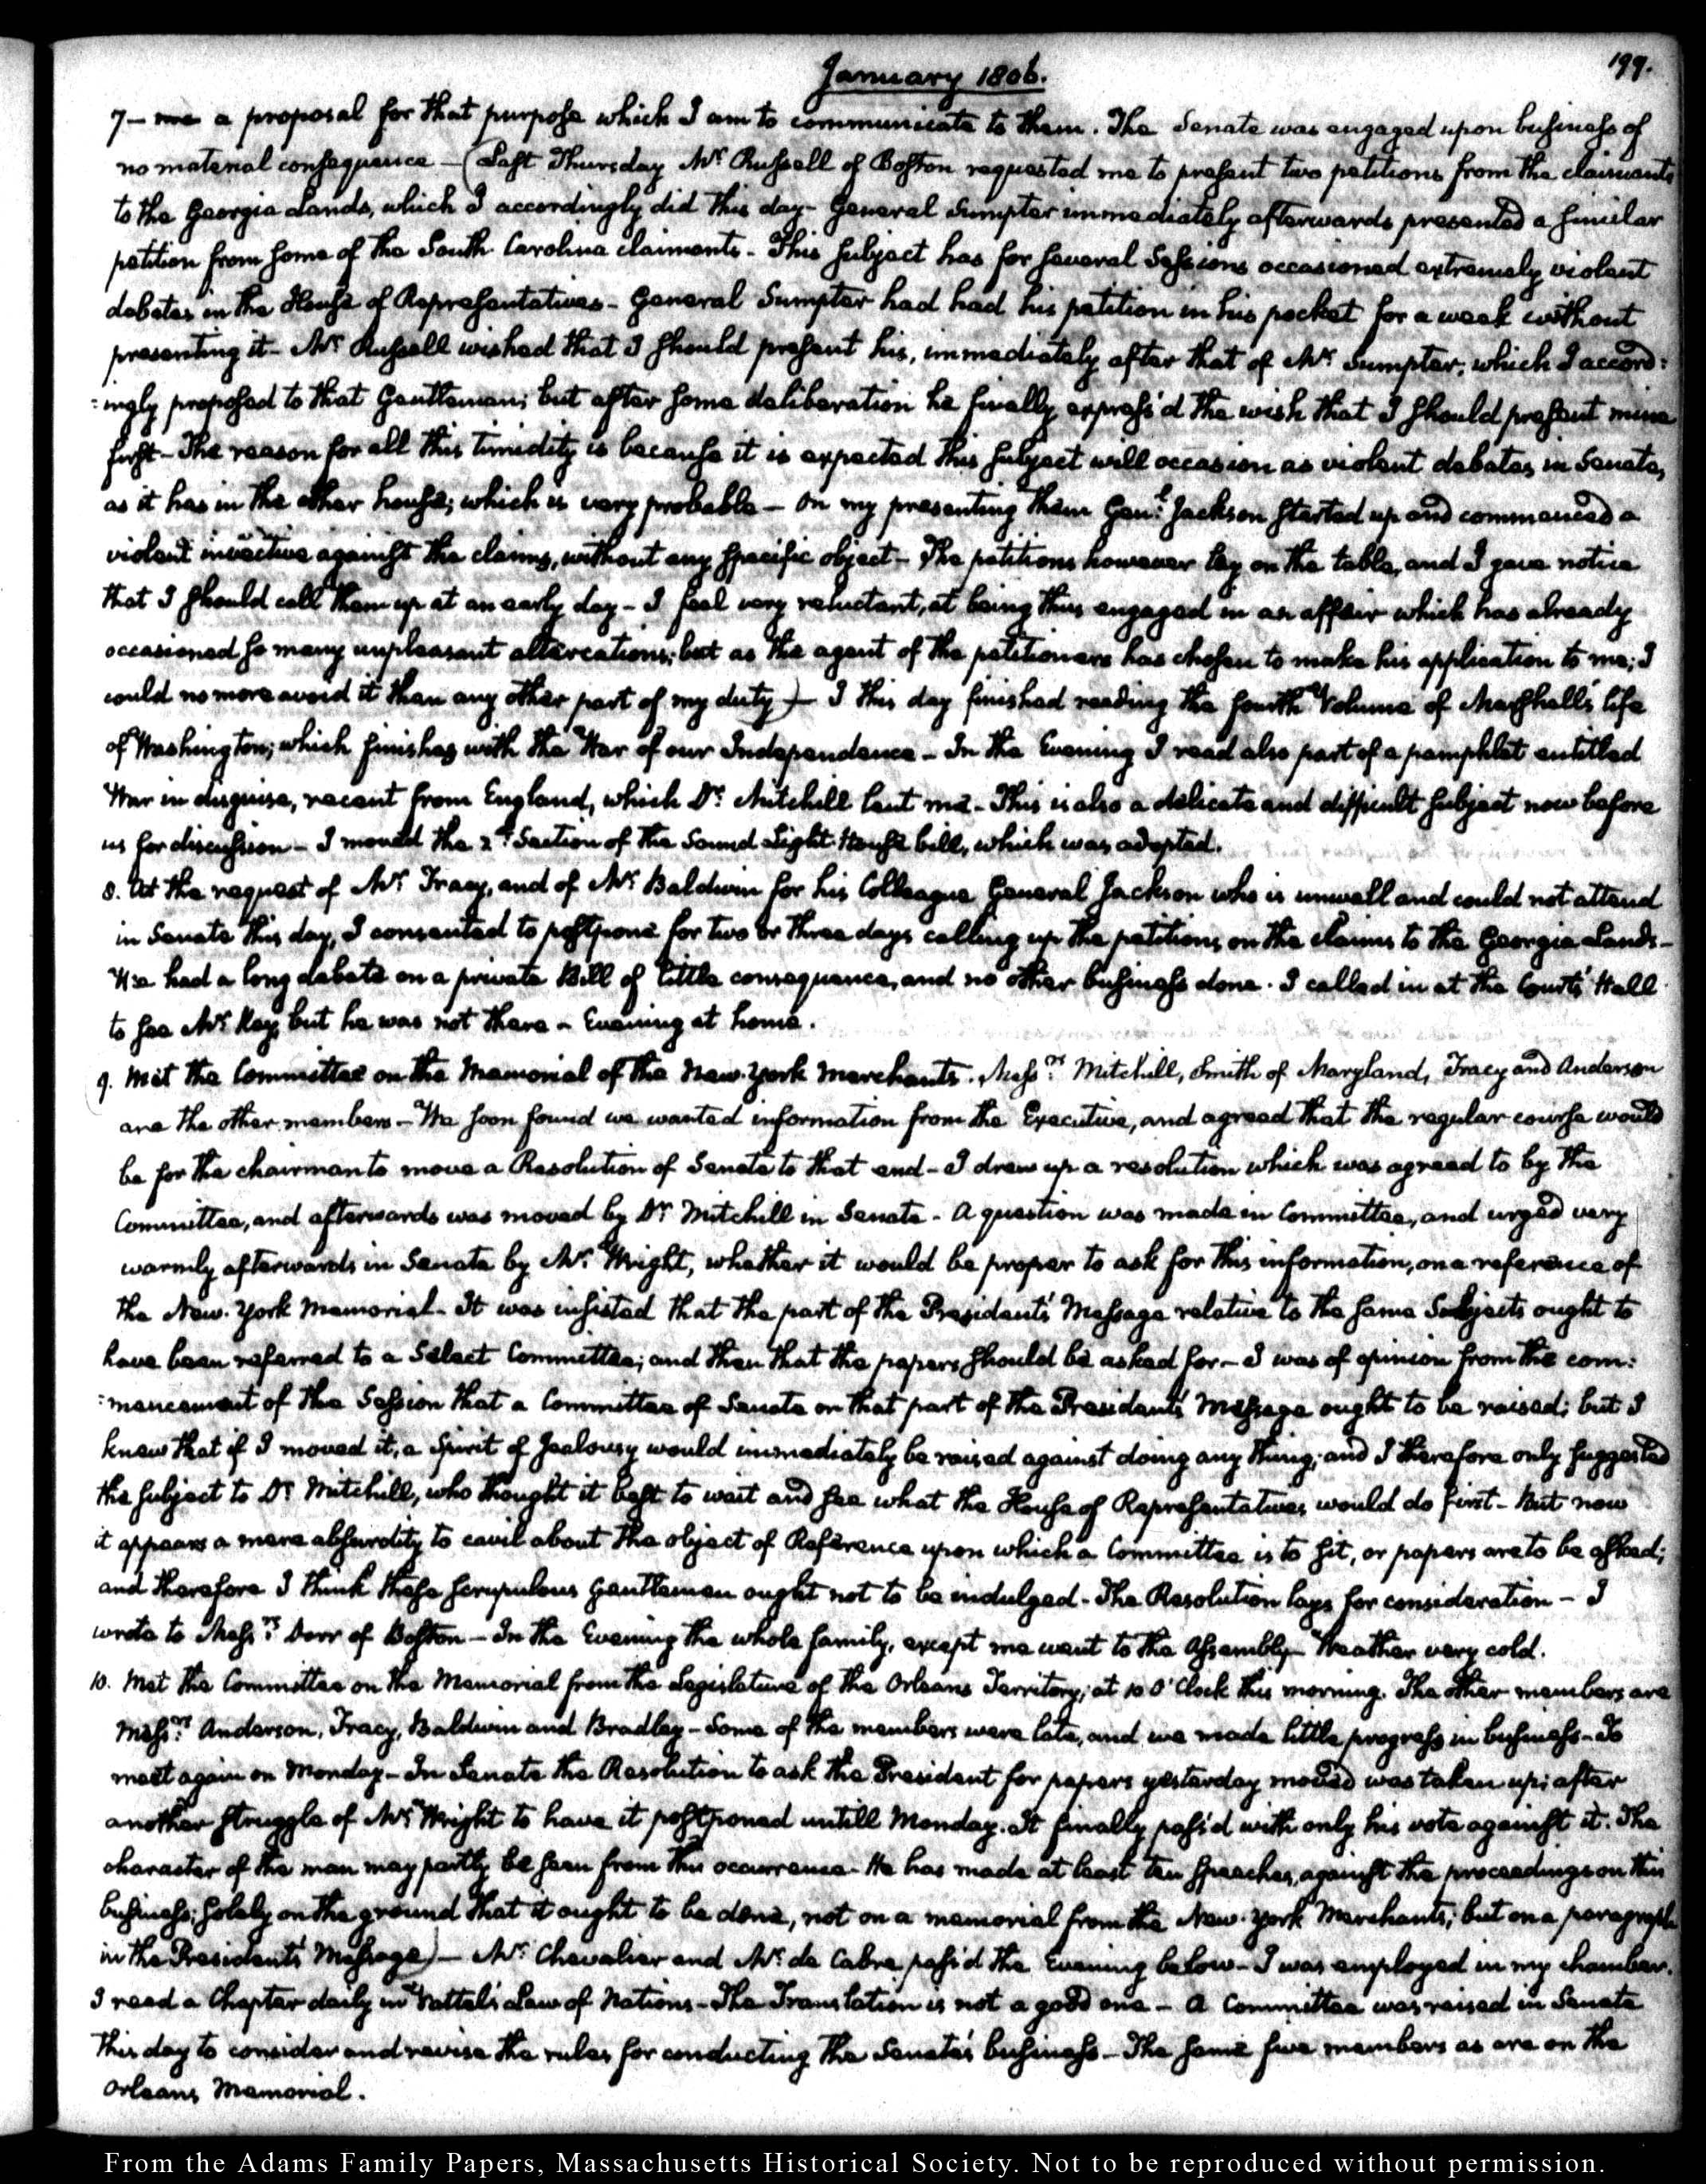 January 1806.
199.
7 — me a proposal for that purpose which I am to communicate to them. The Senate was engaged upon business of
no material consequence — (Last Thursday Mr. Russell of Boston requested me to present two petitions from the claimants
to the Georgia Lands, which I accordingly did this day — General Sumpter immediately afterwards presented a similar
petition from some of the South Carolina claimants — This subject has for several Sessions occasioned extremely violent
debates in the House of Representatives — General Sumpter had had his petition in his pocket for a week without
presenting it — Mr. Russell wished that I should present his, immediately after that of Mr. Sumpter; which I accord:
:ingly proposed to that Gentleman; but after some deliberation he finally express'd the wish that I should present mine
first — The reason for all this timidity is because it is expected this subject will occasion as violent debates in Senate,
as it has in the other house; which is very probable — On my presenting them Genl. Jackson started up and commenced a
violent invective against the claims, without any specific object — The petitions however lay on the table, and I gave notice
that I should call them up at an early day — I feel very reluctant, at being thus engaged in an affair which has already
occasioned so many unpleasant altercations; but as the agent of the petitioners has chosen to make his application to me; I
could no more avoid it than any other part of my duty) — I this day finished reading the fourth Volume of Marshall's life
of Washington; which finishes with the War of our Independence — In the Evening I read also part of a pamphlet entitled
War in disguise, recent from England, which Dr. Mitchill lent me — This is also a delicate and difficult subject now before
us for discussion — I moved the 2d. Section of the Sound Light-House bill, which was adopted.
8. At the request of Mr. Tracy, and of Mr. Baldwin for his Colleague General Jackson who is unwell and could not attend
in Senate this day, I consented to postpone for two or three days calling up the petitions on the claims to the Georgia Lands —
We had a long debate on a private Bill of little consequence, and no other business done. I called in at the Courts' Hall
to see Mr. Key, but he was not there — Evening at home.
9. Met the Committee on the Memorial of the New-York Merchants. Messrs. Mitchill, Smith of Maryland, Tracy and Anderson
are the other members — We soon found we wanted information from the Executive, and agreed that the regular course would
be for the chairman to move a Resolution of Senate to that end — I drew up a resolution which was agreed to by the
Committee, and afterwards was moved by Dr. Mitchill in Senate — A question was made in Committee, and urged very
warmly afterwards in Senate by Mr. Wright, whether it would be proper to ask for this information, on a reference of
the New-York Memorial — It was insisted that the part of the President's Message relative to the same Subjects ought to
have been referred to a Select Committee; and then that the papers should be asked for — I was of opinion from the com:
:mencement of the Session that a Committee of Senate on that part of the President's Message ought to be raised; but I
knew that if I moved it, a Spirit of Jealousy would immediately be raised against doing any thing; and I therefore only suggested
the subject to Dr. Mitchill, who thought it best to wait and see what the House of Representatives would do first — But now
it appears a mere absurdity to cavil about the object of Reference upon which a Committee is to sit, or papers are to be asked;
and therefore I think these scrupulous Gentlemen ought not to be indulged — The Resolution lays for consideration — I
wrote to Messrs. Dorr of Boston — In the Evening the whole family, except me went to the Assembly — Weather very cold.
10. Met the Committee on the Memorial from the Legislature of the Orleans Territory; at 10 O'Clock this morning. The other members are
Messrs. Anderson, Tracy, Baldwin and Bradley — Some of the members were late, and we made little progress in business — To
meet again on Monday — In Senate the Resolution to ask the President for papers yesterday moved was taken up; after
another struggle of Mr. Wright to have it postponed untill Monday. It finally pass'd with only his vote against it. The
character of the man may partly be seen from this occurrence — He has made at least ten speeches, against the proceedings on this
business; solely on the ground that it ought to be done, not on a memorial from the New-York Merchants; but on a paragraph
in the President's Message) — Mr. Chevalier and Mr. de Cabre pass'd the Evening below — I was employed in my chamber.
I read a Chapter daily in Vattel's Law of Nations — The Translation is not a good one — A Committee was raised in Senate
this day to consider and revise the rules for conducting the Senate's business — The same five members as are on the
Orleans Memorial.
From the Adams Family Papers, Massachusetts Historical Society. Not to be reproduced without permission.